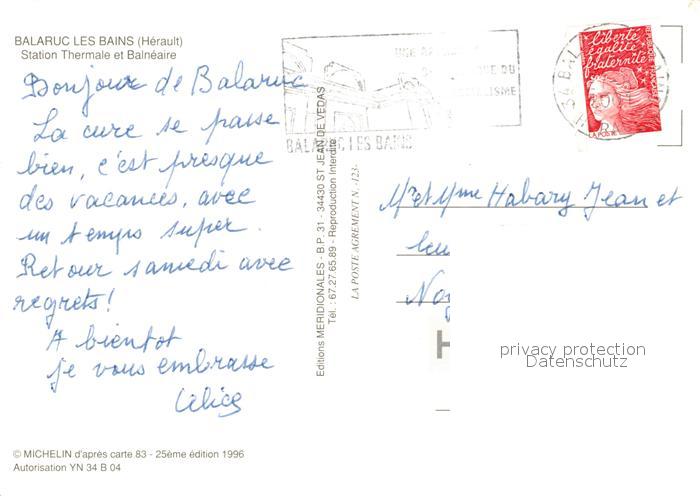 BALARUC LES BAINS (Hérault)
Station Thermale et Balnéaire
Bonjour de Balaruc
La cure se passe
bien, c'est presque
des vacances, avec
un temps super.
Retour samedi avec
regrets!
A bientot
je vous embrasse
© MICHELIN d'après carte 83 - 25ème édition 1996
Autorisation YN 34 B 04
Editions MERIDIONALES - B.P. 31 - 34430 ST JEAN DE VEDAS
Tél. : 67.27.65.89 - Reproduction Interdite
LA POSTE AGREMENT N. -123-
BALARUC LES BAINS
liberté
égalité
fraternité
LA POSTE
Mr et Mme Habary Jean et
privacy protection
Datenschutz